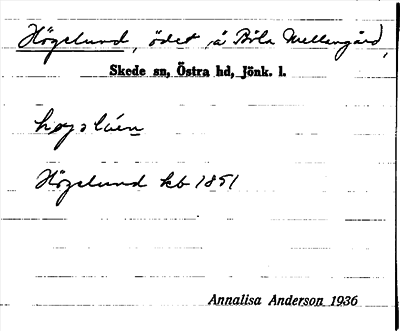 Högelund, ödet, å Böla Mellangård,
Skede sn, Östra hd, Jönk. l.
Högelund kb 1851
Annalisa Anderson 1936